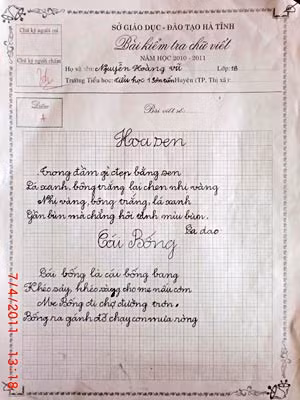 SỞ GIÁO DỤC - ĐÀO TẠO HÀ TĨNH
Chữ ký người coi
Bài kiểm tra chữ viết
NĂM HỌC 2010 - 2011
Chữ ký người chấm
Họ và tên: Nguyễn Hoàng Vũ Lớp: 1B
Trường Tiểu học: tiểu học Huyện (TP. Thị xã):
Điểm
A
Bài viết số:
Hoa sen
Trong đầm gì đẹp bằng sen
Lá xanh, bông trắng lại chen nhị vàng
Nhị vàng, bông trắng, lá xanh
Gần bùn mà chẳng hôi tanh mùi bùn.
Ca dao
Cái Bống
Cái bống là cái bống bang
Khéo sảy, khéo sàng cho mẹ nấu cơm
Mẹ Bống đi chợ đường trơn.
Bống ra gánh đỡ chạy cơn mưa ròng
7/4/2011 13:18